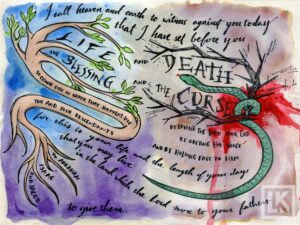 I call heaven and earth to witness against you today
that I have set before you
LIFE
THE BLESSING
AND
AND
DEATH
THE CURSE
YOU AND YOUR DESCENDANTS
BY LOVING THE LORD YOUR GOD
BY OBEYING HIS VOICE
AND BY HOLDING FAST TO HIM
for this is your life and the length of your days
that you may live
in the land which the Lord swore to your fathers
to give them.
LK